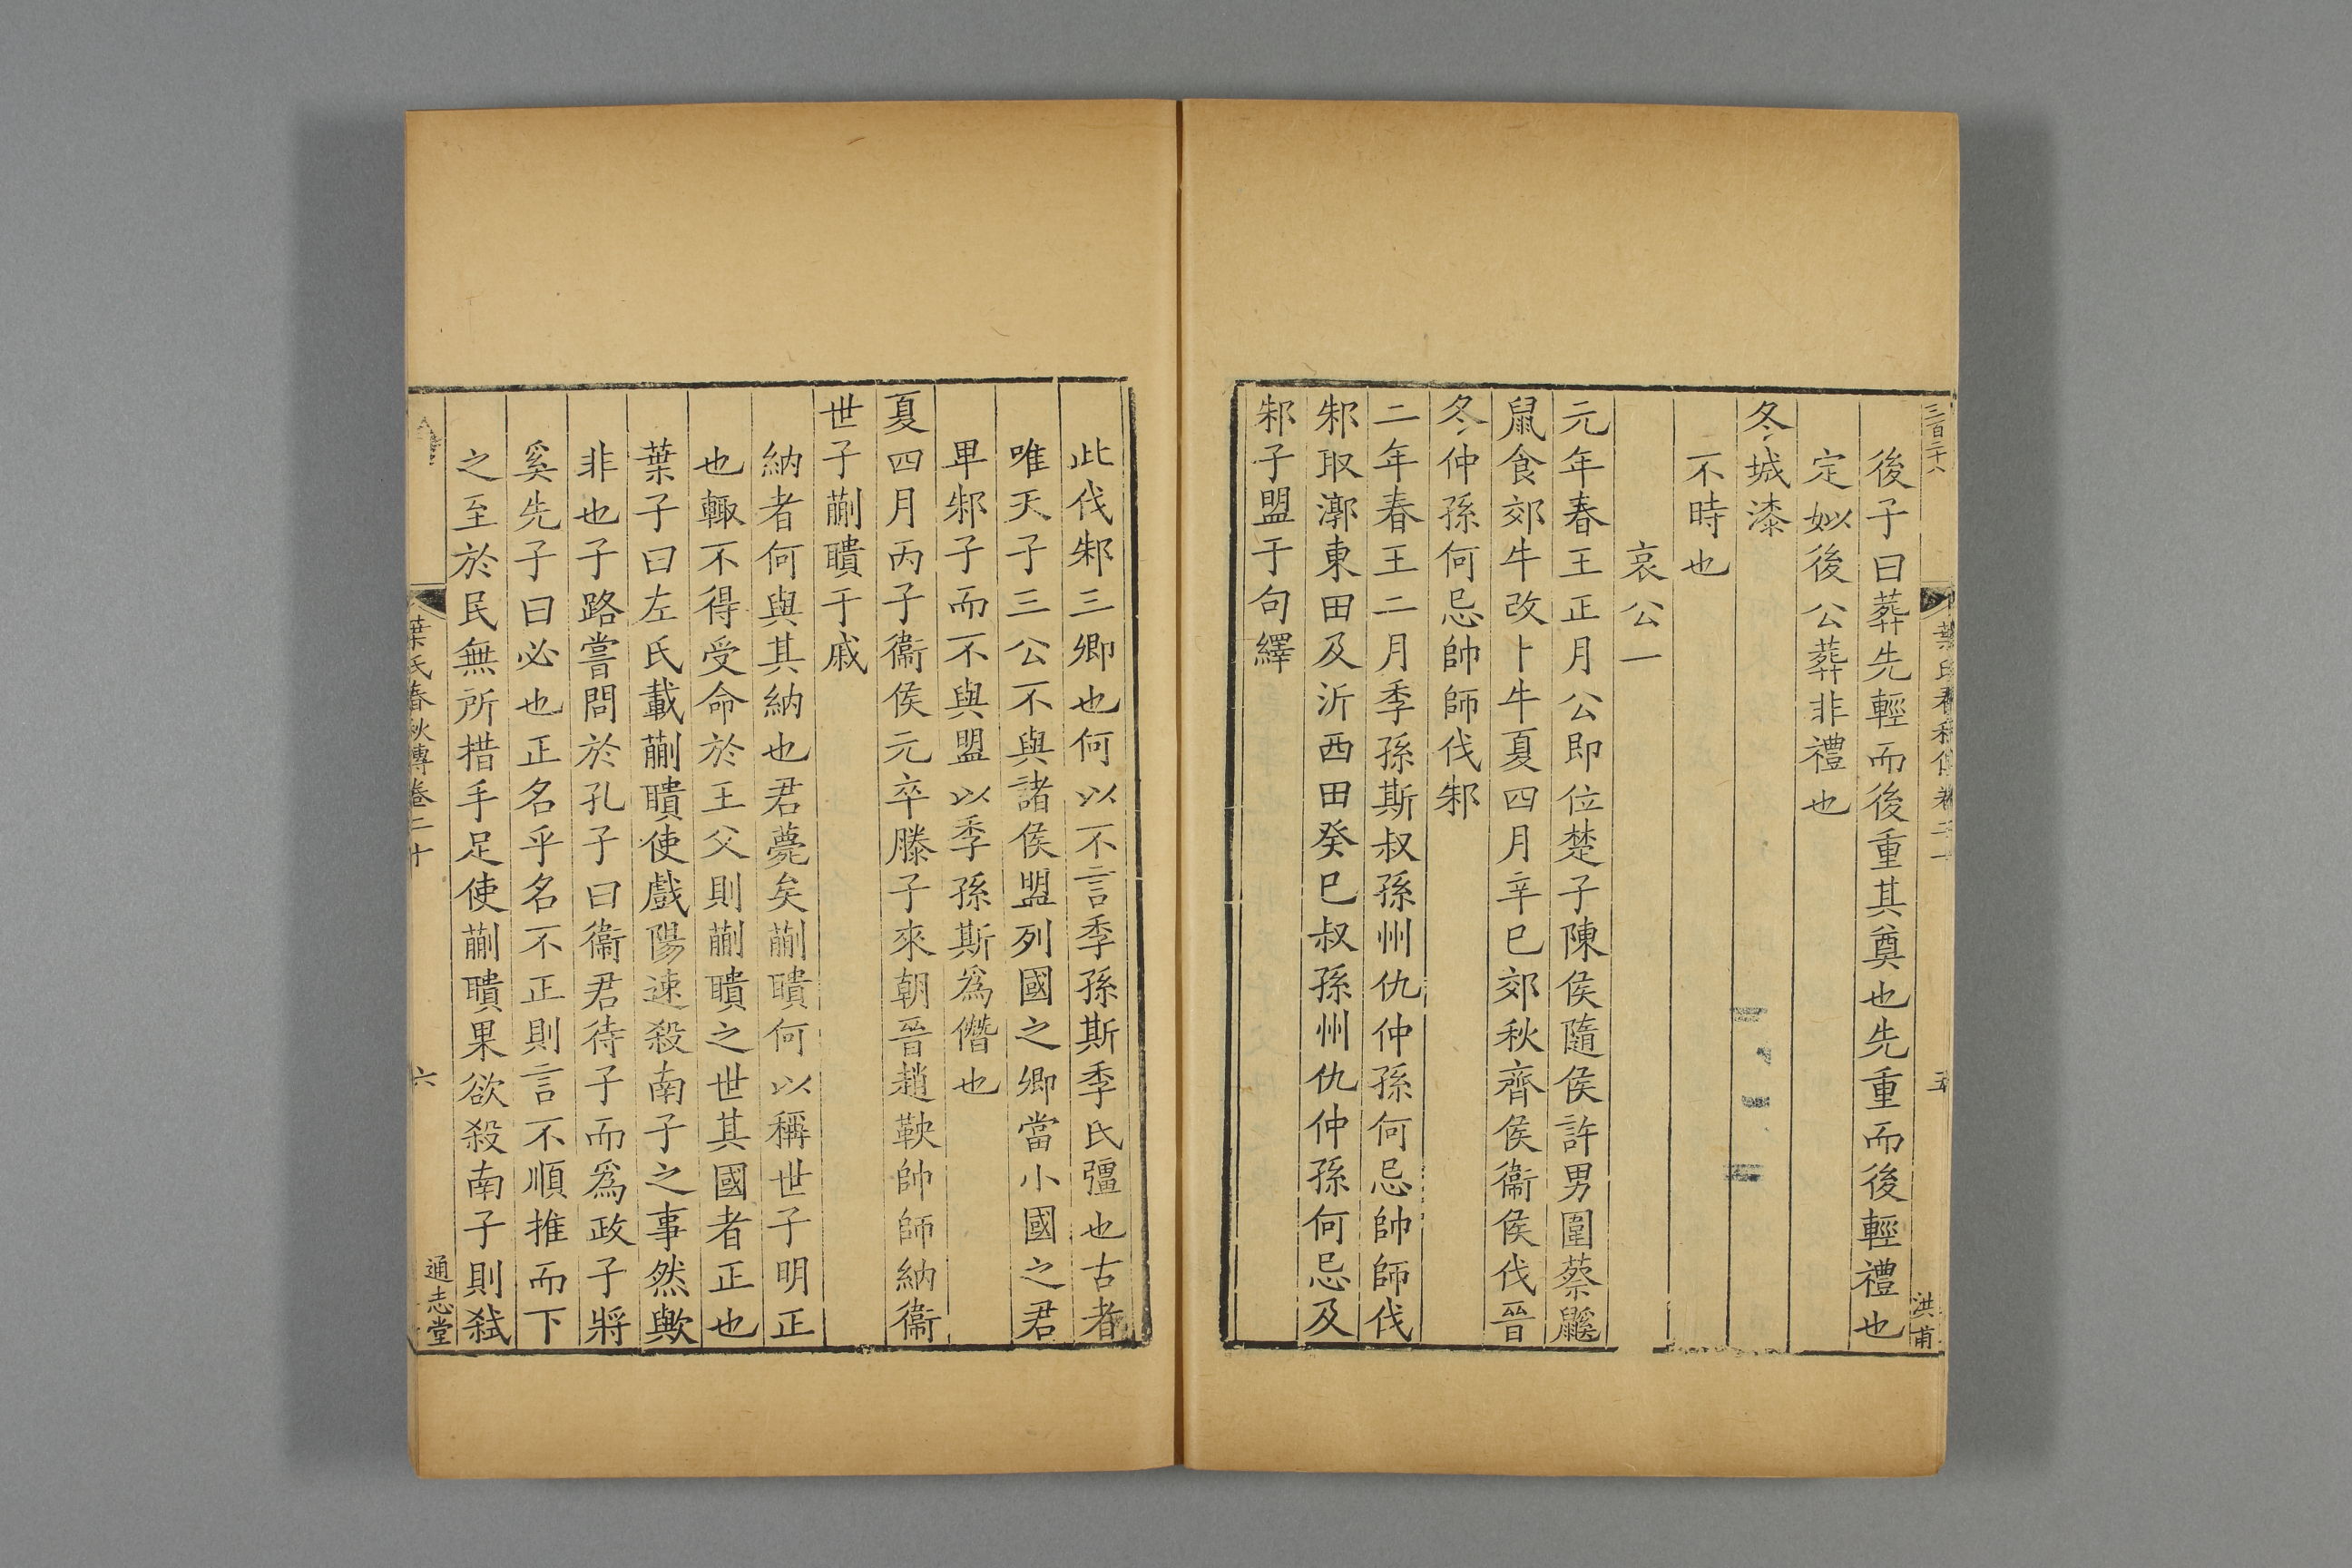 三百二十八
葉氏春秋傳卷二十
五
洪甫
後子曰葬先輕而後重其奠也先重而後輕禮也
定姒後公葬非禮也
冬城漆
不時也
哀公一
元年春王正月公即位楚子陳侯隨侯許男圍蔡鼷
鼠食郊牛改卜牛夏四月辛巳郊秋齊侯衞侯伐晉
冬仲孫何忌帥師伐邾
二年春王二月季孫斯叔孫州仇仲孫何忌帥師伐
邾取漷東田及沂西田癸巳叔孫州仇仲孫何忌及
邾子盟于句繹
此伐邾三卿也何以不言季孫斯季氏彊也古者
唯天子三公不與諸侯盟列國之卿當小國之君
卑邾子而不與盟以季孫斯爲僭也
夏四月丙子衞侯元卒滕子來朝晉趙鞅帥師納衞
世子蒯聵于戚
納者何與其納也君薨矣蒯聵何以稱世子明正
也輙不得受命於王父則蒯聵之世其國者正也
葉子曰左氏載蒯聵使戲陽速殺南子之事然歟
非也子路嘗問於孔子曰衞君待子而爲政子將
奚先子曰必也正名乎名不正則言不順推而下
之至於民無所措手足使蒯聵果欲殺南子則弑
葉氏春秋傳卷二十
六
通志堂